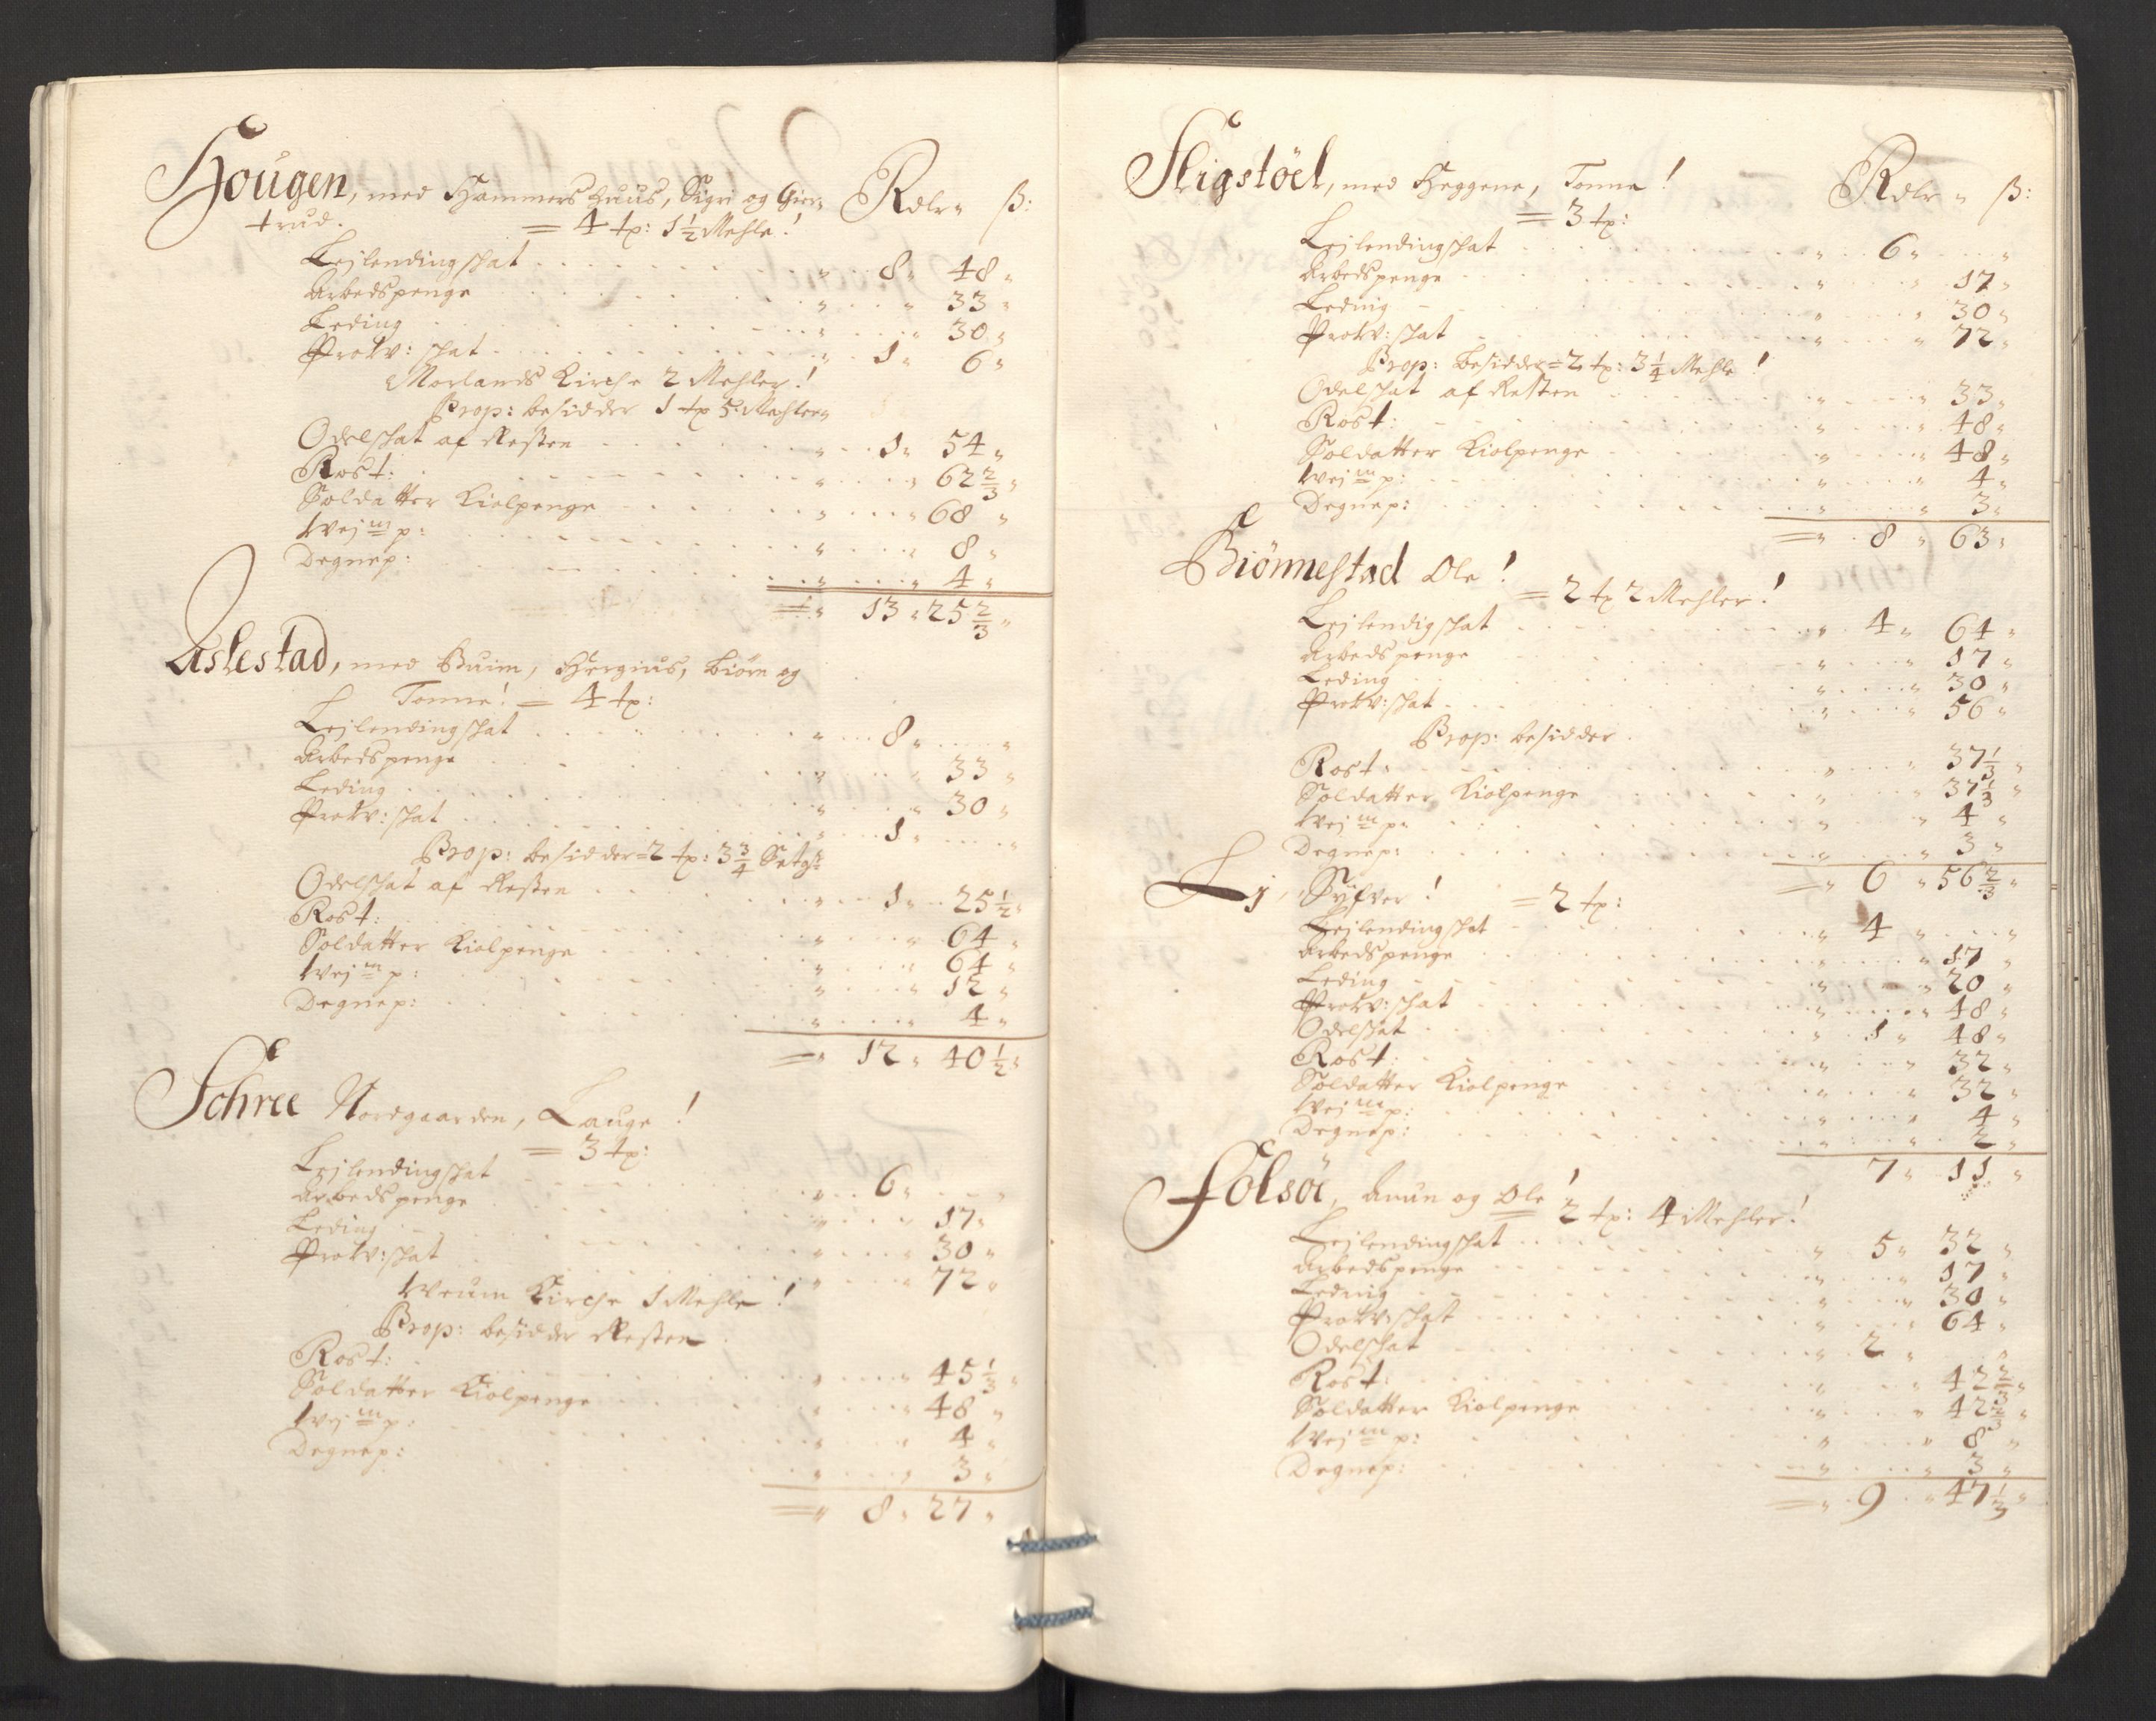 Hougen, med Hammershuus, Sigri og Gier- Rdlr " ß:
trud. = 4 tp: 1½ Mehle!
Leilendingschat . . . " . . 8 " 48 "
Arbedspenge . . . " . . " 33 "
Leding . . . " . . " 30 "
Protv: schat . . . " . . 1 " 6 "
Morlands Kirche 2 Mehler!
Prop: besidder 1 tp 5 Mehler"
Odelschat af Resten . . . " . . 1 " 54 "
Rost: . . . " . . " 62⅔ "
Soldatter Kiolpenge . . . " . . " 68 "
Wej m p: . . . " . . " 8 "
Degnep: . . . " . . " 4 "
= " 13 " 25⅔ "
Aslestad, med Buim, Hergius, Biörn og
Tonne! = 4 tp:
Leilendingschat . . . " . . 8 " . . "
Arbedspenge . . . " . . " 33 "
Leding . . . " . . " 30 "
Protv: schat . . . " . . 1 " . . "
Prop: besidder = 2 tp: 3¾ Setg:
Odelschat af Resten . . . " . . 1 " 25½ "
Rost: . . . " . . " 64 "
Soldatter Kiolpenge . . . " . . " 64 "
Wej m p: . . . " . . " 12 "
Degnep: . . . " . . " 4 "
= " 12 " 40½ "
Schree Nordgaarden, Lauge!
= 3 tp:
Leilendingschat . . . " . . 6 " . . "
Arbedspenge . . . " . . " 17 "
Leding . . . " . . " 30 "
Protv: schat . . . " . . " 72 "
Weum Kirche 1 Mehle!
Prop: besidder Resten
Rost: . . . " . . " 45⅓ "
Soldatter Kiolpenge . . . " . . " 48 "
Wej m p: . . . " . . " 4 "
Degnep: . . . " . . " 3 "
= " 8 " 27 "
Sligstöel, med Heggene, Tonne! Rdlr " ß:
= 3 tp:
Leilendingschat . . . " . . 6 " . . "
Arbedspenge . . . " . . " 17 "
Leding . . . " . . " 30 "
Protv: schat . . . " . . " 72 "
Prop: besidder = 2 tp: 3¼ Mehle!
Odelschat af Resten . . . " . . " 33 "
Rost: . . . " . . " 48 "
Soldatter Kiolpenge . . . " . . " 48 "
Wej m p: . . . " . . " 4 "
Degnep: . . . " . . " 3 "
= " 8 " 63 "
Biönnestad Ole!
= 2 tp 2 Mehler!
Leilendigschat . . . " . . 4 " 64 "
Arbedspenge . . . " . . " 17 "
Leding . . . " . . " 30 "
Protv: schat . . . " . . " 56 "
Prop: besidder .
Rost: . . . " . . " 37⅓ "
Soldatter Kiolpenge . . . " . . " 37⅓ "
Wej m p: . . . " . . " 4 "
Degnep: . . . " . . " 3 "
= " 6 " 56⅔ "
Li, Syfver! = 2 tp:
Leilendingschat . . . " 4 " . . "
Arbedspenge . . . " . . " 17 "
Leding . . . " . . " 20 "
Protv: schat . . . " . . " 48 "
Odelschat . . . " 1 " 48 "
Rost: . . . " . . " 32 "
Soldatter Kiolpenge . . . " . . " 32 "
Wej m p: . . . " . . " 4 "
Degnep: . . . " . . " 2 "
7 " 11 "
Folsöe, Anun og Ole! = 2 tp: 4 Mehler!
Leilendingschat . . . " 5 " 32 "
Arbedspenge . . . " . . " 17 "
Leding . . . " . . " 30 "
Protv: schat . . . " . . " 64 "
Odelschat . . . " 2 " . . "
Rost: . . . " . . " 42⅔ "
Soldatter Kiolpenge . . . " . . " 42⅔ "
Wej m p: . . . " . . " 8 "
Degnep: . . . " . . " 3 "
= " 9 " 47⅓ "